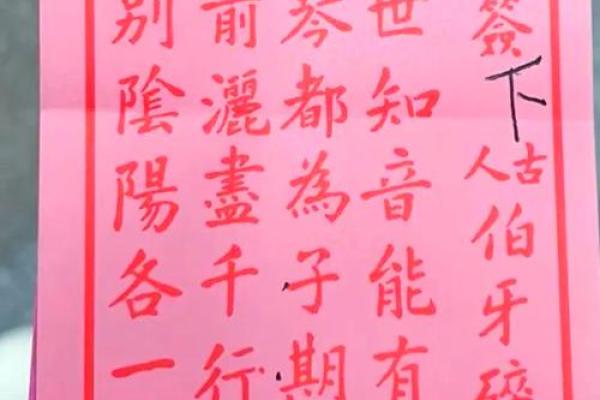 簽
下
古人
伯牙碎
世知音能有
琴都為子期
前灑盡千行
別陰陽各一